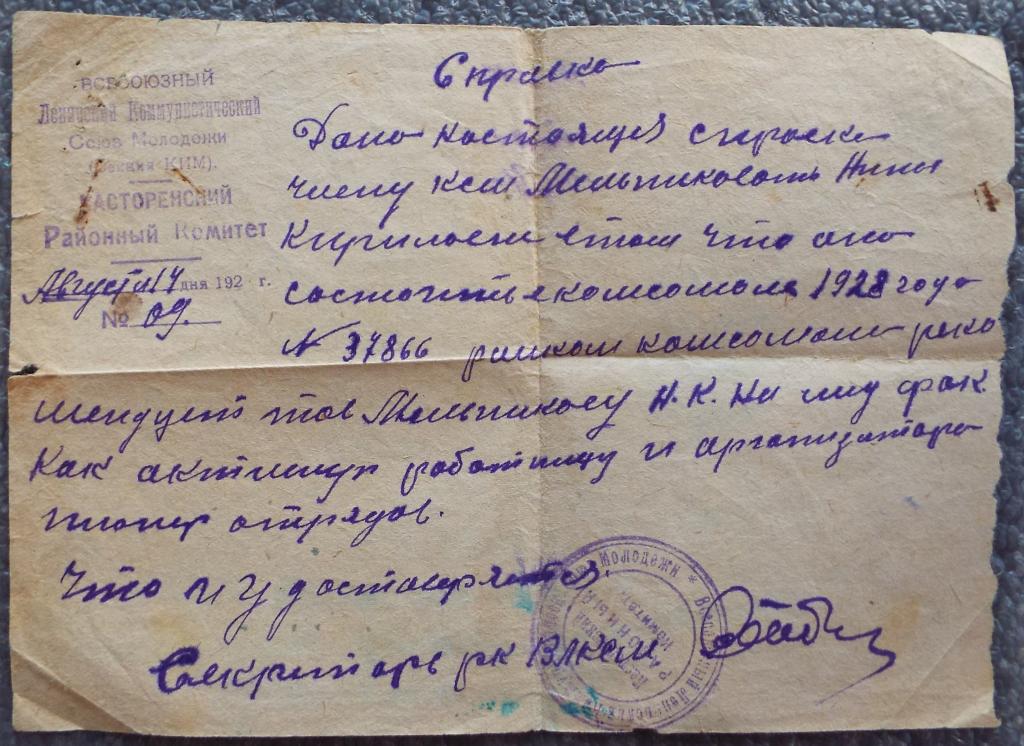 ВСЕСОЮЗНЫЙ
Ленинский Коммунистический
Союз Молодежи
(Секция КИМ).
КАСТОРЕНСКИЙ
Районный Комитет
Августа 14 дня 192 г.
№ 09.
Справка
Дано настоящая справка
члену ксм Мельниковой Нины
Кириловне втом что она
состоить вкомсомоле 1928 года
N 37866 райком комсомола реко
мендует тов Мельникову Н.К. На мед фак
Как активную работницу и организатора
пионер отрядов.
Что и удостоверяется.
Секритарь рк ВЛКСМ
Молодежи * Всесоюзный Лен
Районный
Комитет